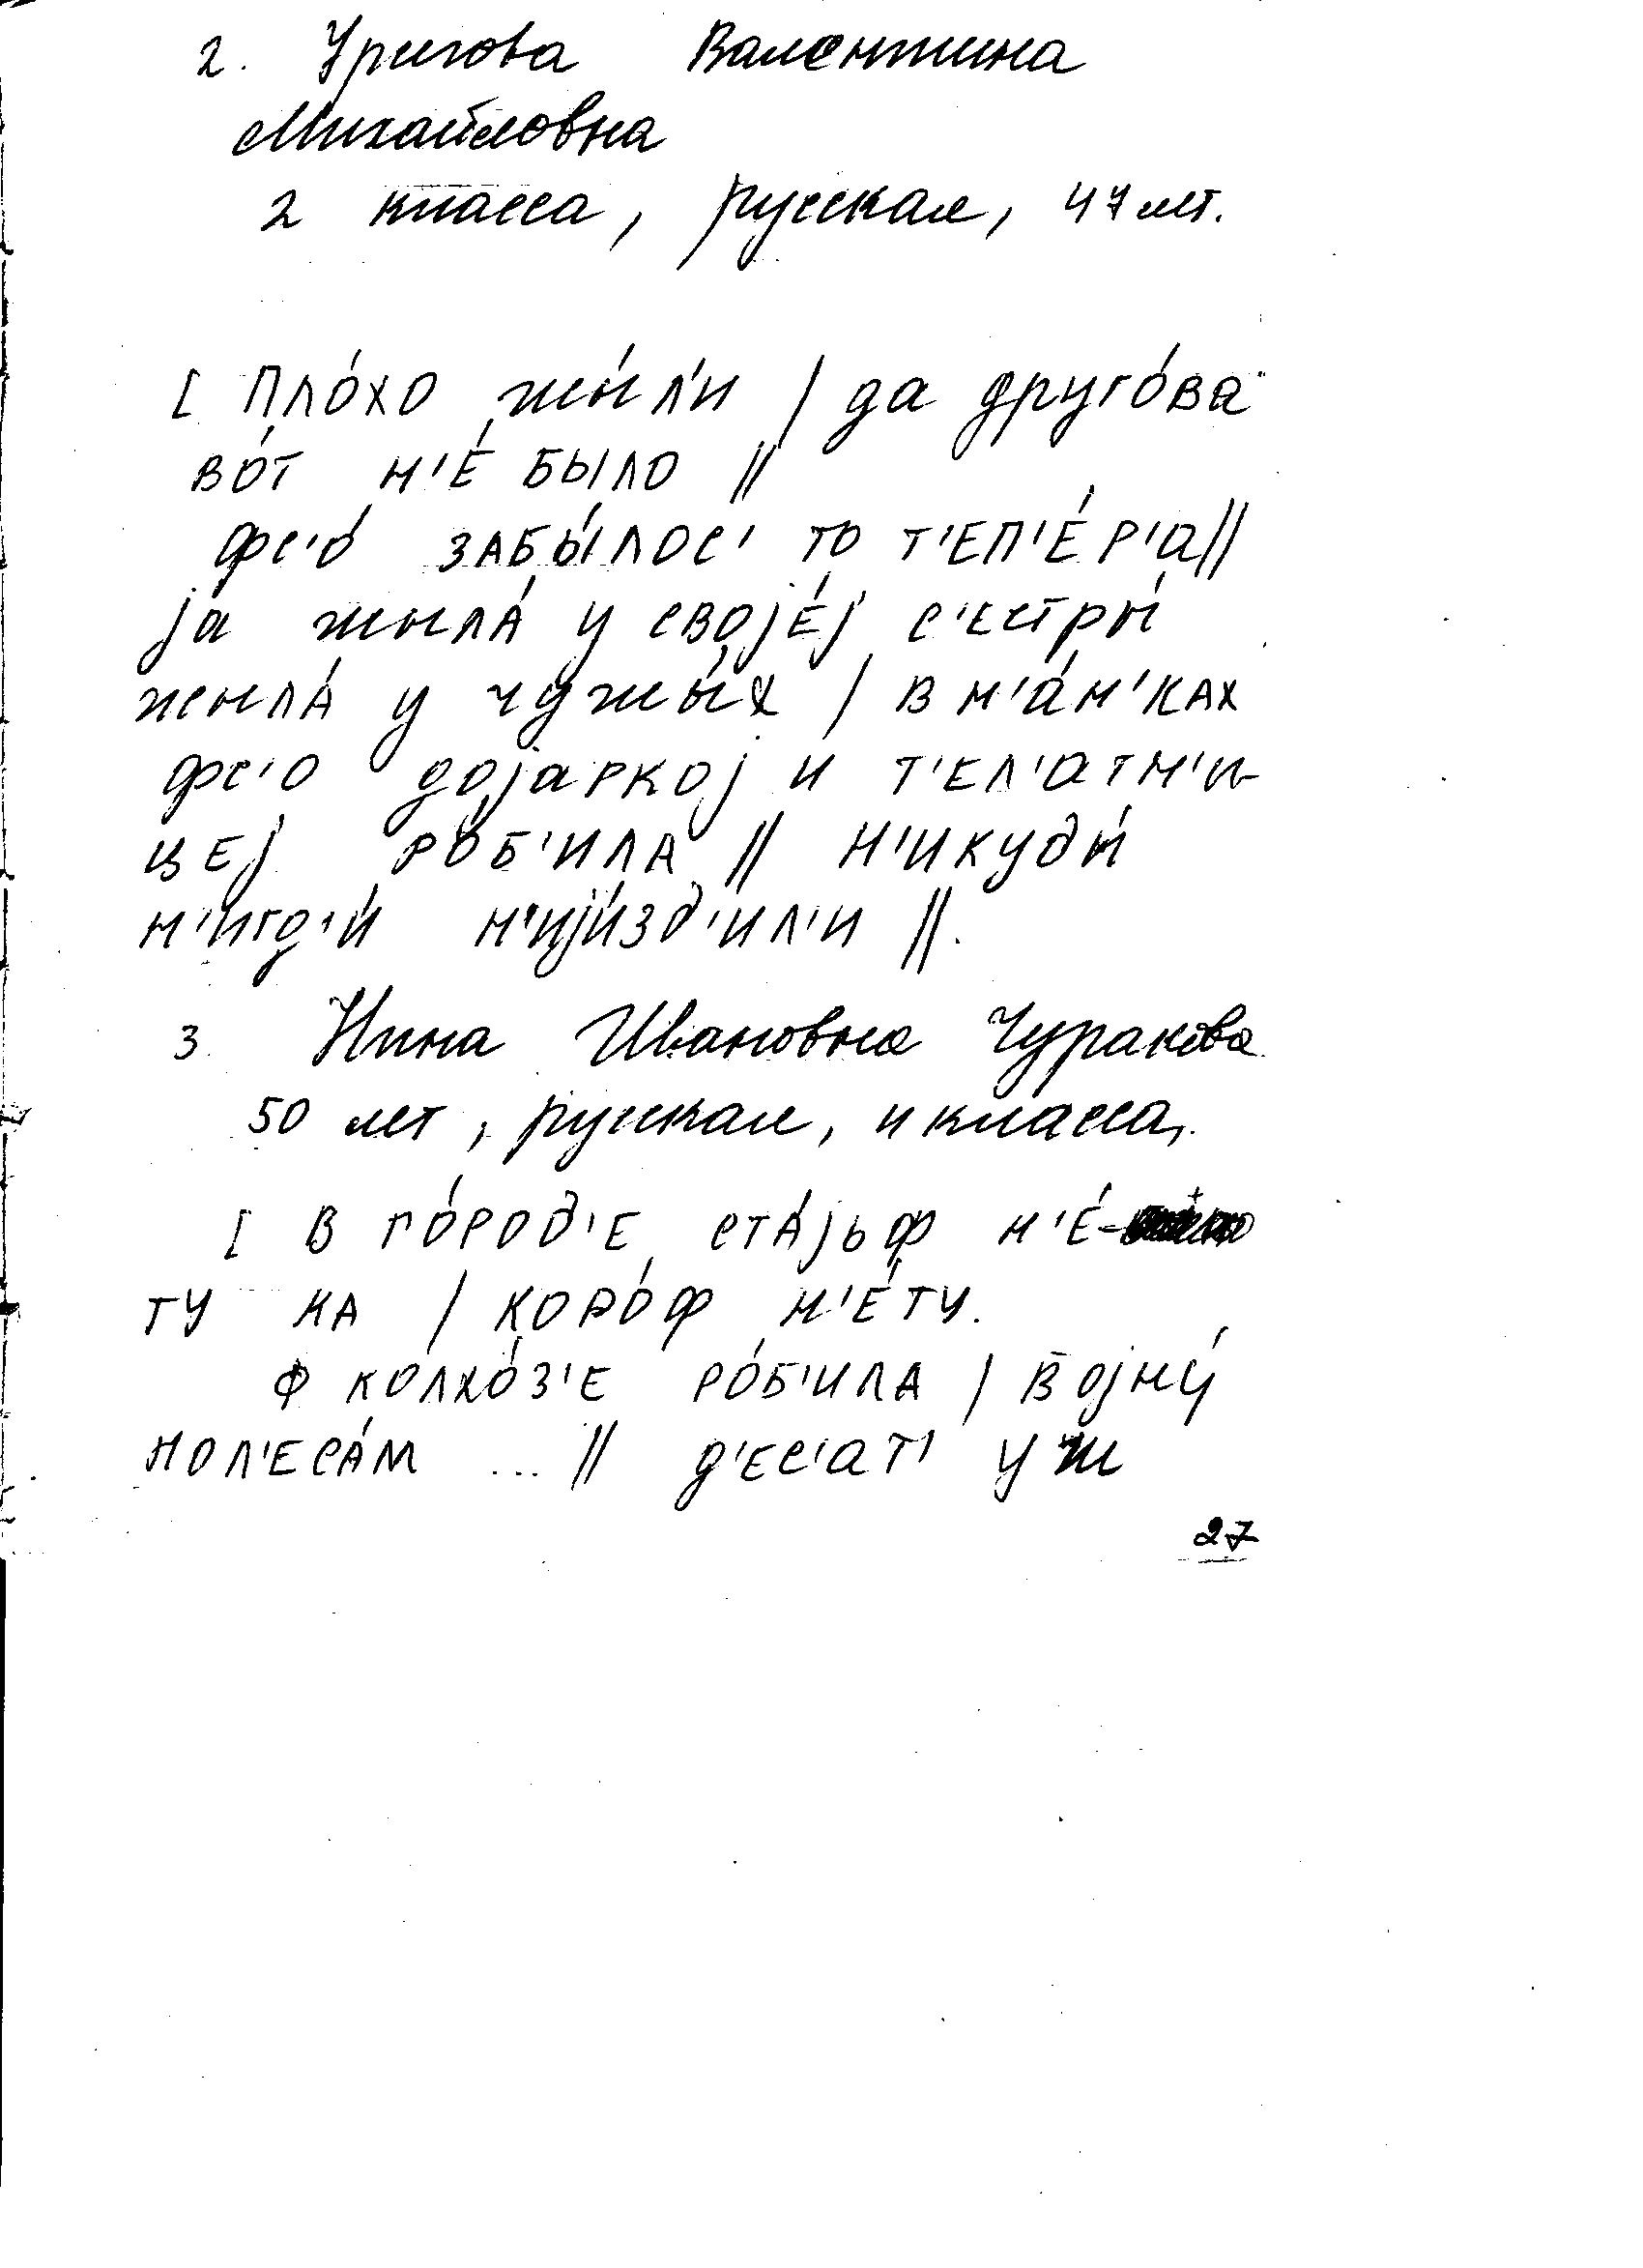 2. Уригова Валентина
Михайловна
2 класса, русская, 47 лет.
[ пло́хо жы́л'и / да друго́ва
во́т н'е́ было //
фс'о́ забы́лос' то т'еп'е́р'а //
jа́ жыла́ у своjе́j с'естры́
жыла́ у чужы́х / в н'а́н'ках
фс'о доjаркоj и т'ел'атн'и-
цеj ро́б'ила // н'икуды́
н'игд'и́ н'иjи́зд'ил'и //.
3. Нина Ивановна Чуракова
50 лет, русская, 4 класса,.
[ в го́род'е ста́jьф н'е́-
ту ка / коро́ф н'е́ту.
ф колхо́з'е ро́б'ила / воjну́
пол'еса́м ... // д'ес'ат' уж
27